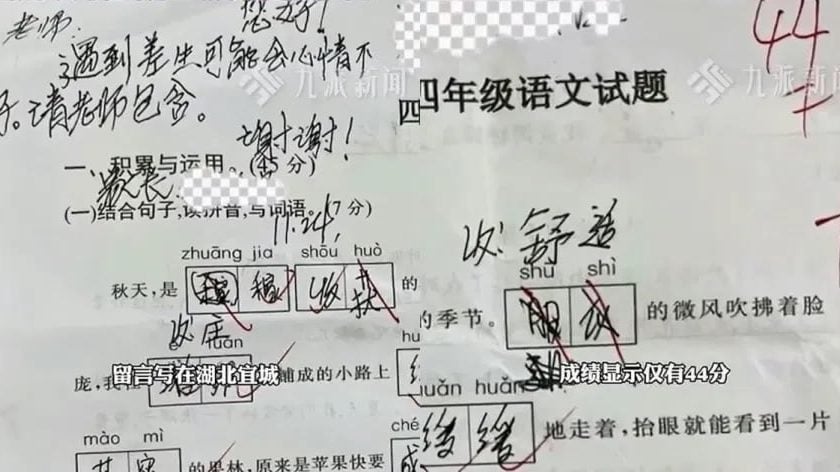 老师:
您好!
遇到差生可能会心情不
好。请老师包含。
谢谢!
家长:
11.24
九派新闻
一、积累与运用。(45分)
(一)结合句子,读拼音,写词语。(7分)
zhuāng jia shōu huò
秋天,是
收获
的
改:庄
留言写在湖北宜城
庞,我在
铺成的小路上
mào mì
的果林,原来是苹果快要
44
九派新闻
四年级语文试题
改:舒适
shū shì
的季节。
服
的微风吹拂着脸
成绩显示仅有44分
huǎn huǎn
缓缓
地走着,抬眼就能看到一片
chéng
成